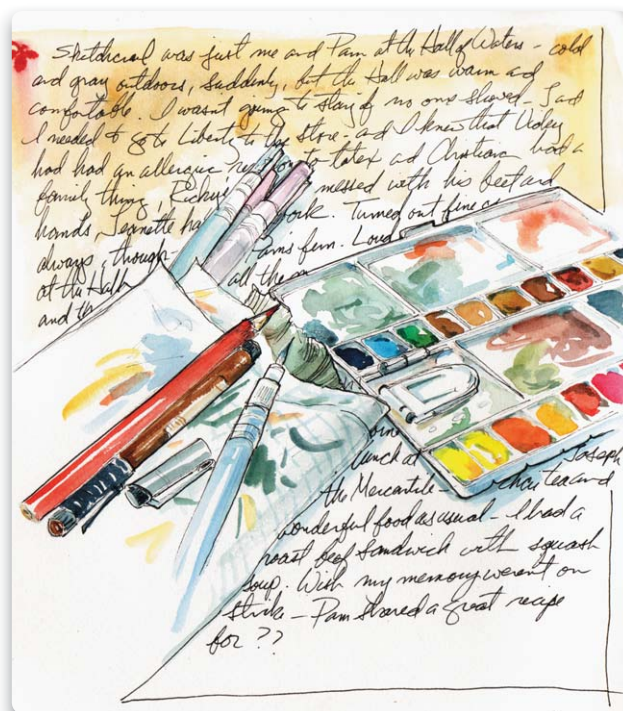 Sketchcrawl was just me and Pam at the Hall of Waters - cold
and gray outdoors, suddenly, but the Hall was warm and
comfortable. I wasn't going to stay if no one showed -
I needed to go to Liberty to the store - and I knew that
had had an allergic to latex and had a
family thing, messed with his feet and
hands, Jeanette ha ork. Turned out fine
always, though Pam's fun. Loud
at the Hall all the
and th
lunch at Joseph
the Mercantile - chai tea and
wonderful food as usual - I had a
roast beef sandwich with squash
soup. Wish my memory weren't on
strike - Pam shared a great recipe
for ??